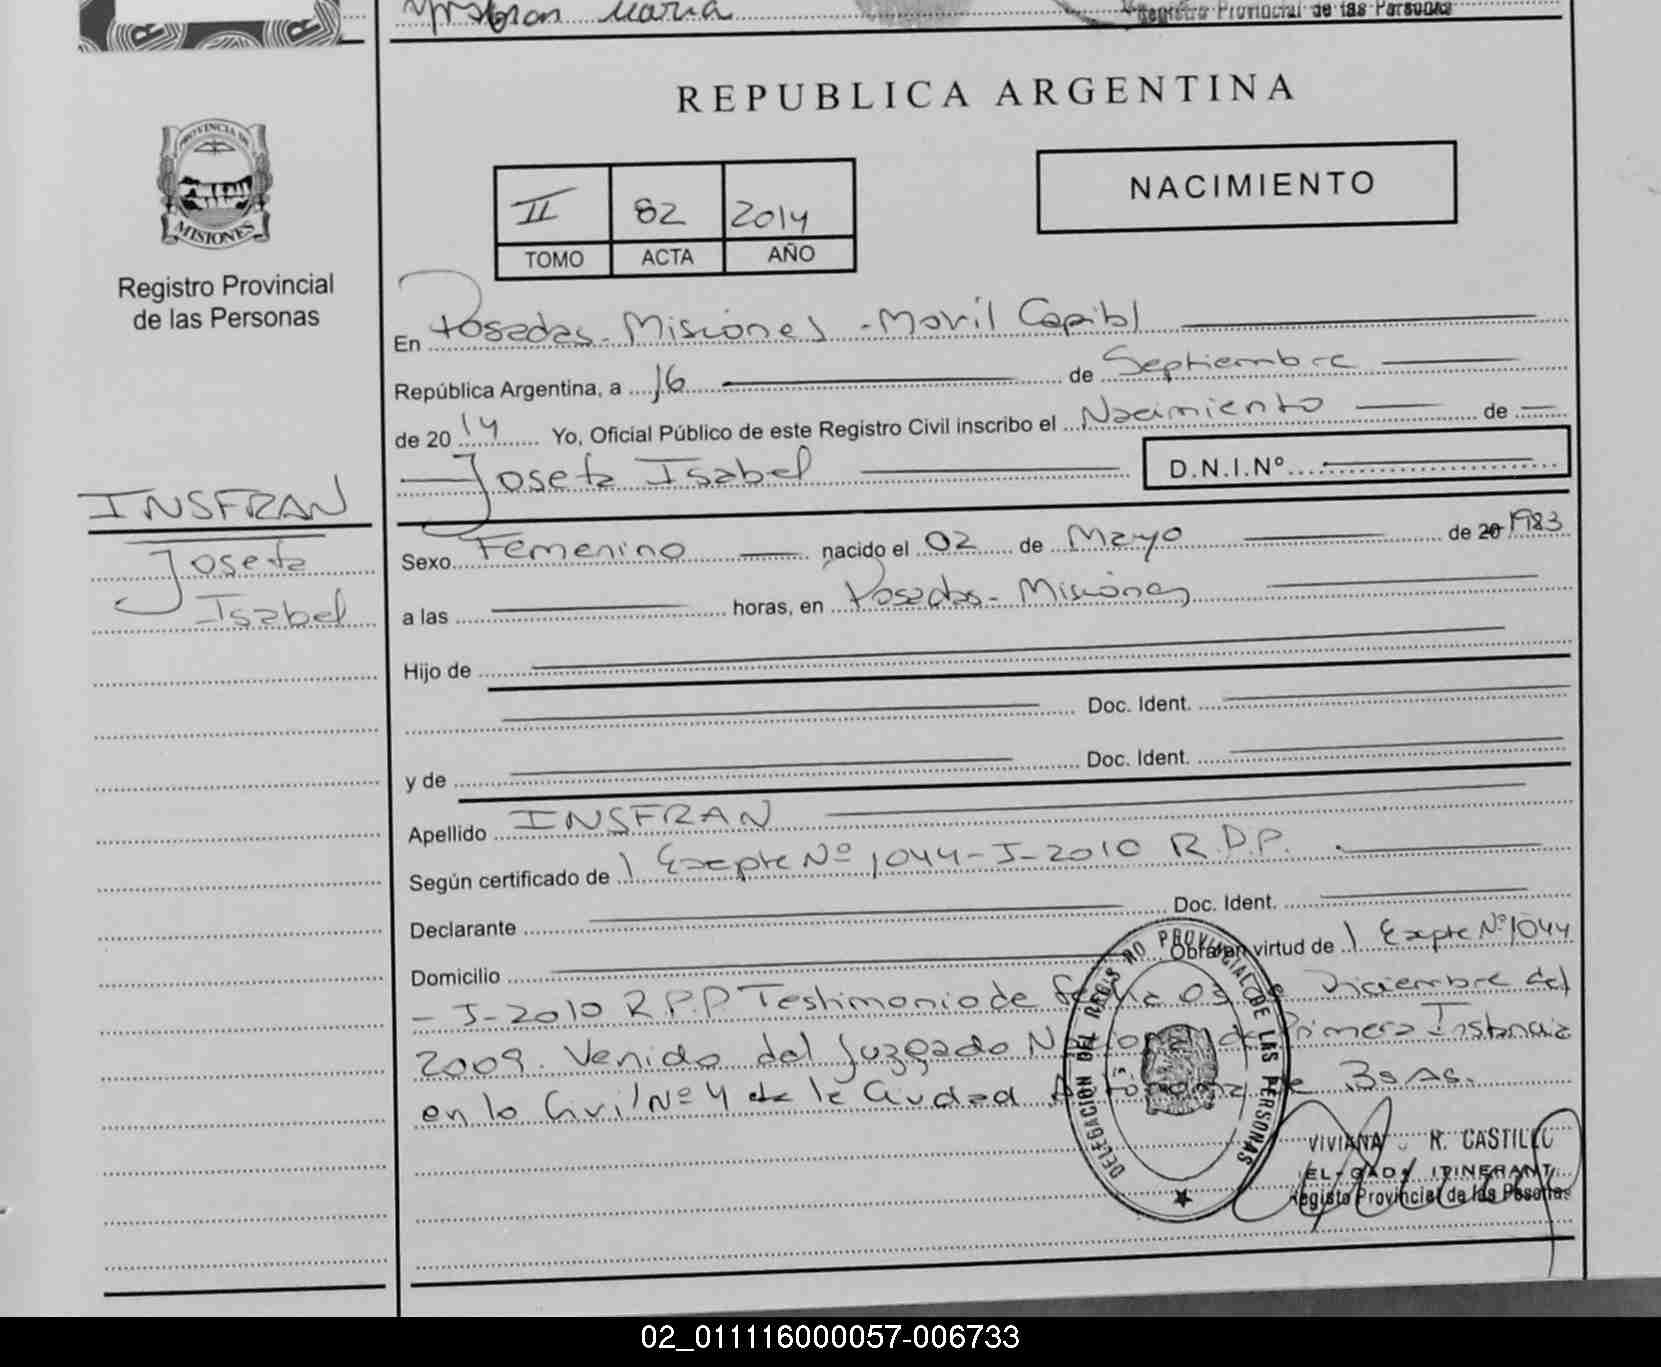 Insfran Maria
Registro Provincial de las Personas
REPUBLICA ARGENTINA
PROVINCIA DE
MISIONES
Registro Provincial
de las Personas
II 82 2014
TOMO ACTA AÑO
NACIMIENTO
En Posadas - Misiones - Movil Capital
República Argentina, a 16 de Septiembre
de 2014 Yo, Oficial Público de este Registro Civil inscribo el Nacimiento de
Josefa Isabel D.N.I.Nº
INSFRAN
Josefa
Isabel
Sexo Femenino nacido el 02 de Mayo de 20 1983
a las horas, en Posadas - Misiones
Hijo de
Doc. Ident.
y de Doc. Ident.
Apellido INSFRAN
Según certificado de Expte Nº 1044-J-2010 R.D.P.
Declarante Doc. Ident.
Domicilio Obrar en virtud de Expte Nº 1044
- J-2010 R.P.P. Testimonio de fecha 09 de Diciembre del
2009. Venido del Juzgado Nacional de Primera Instancia
en lo Civil Nº 4 de la Ciudad Autonoma de Bs As.
DELEGACION DEL REGISTRO PROVINCIAL DE LAS PERSONAS
VIVIANA R. CASTILLO
Registro Provincial de las Personas
02_011116000057-006733